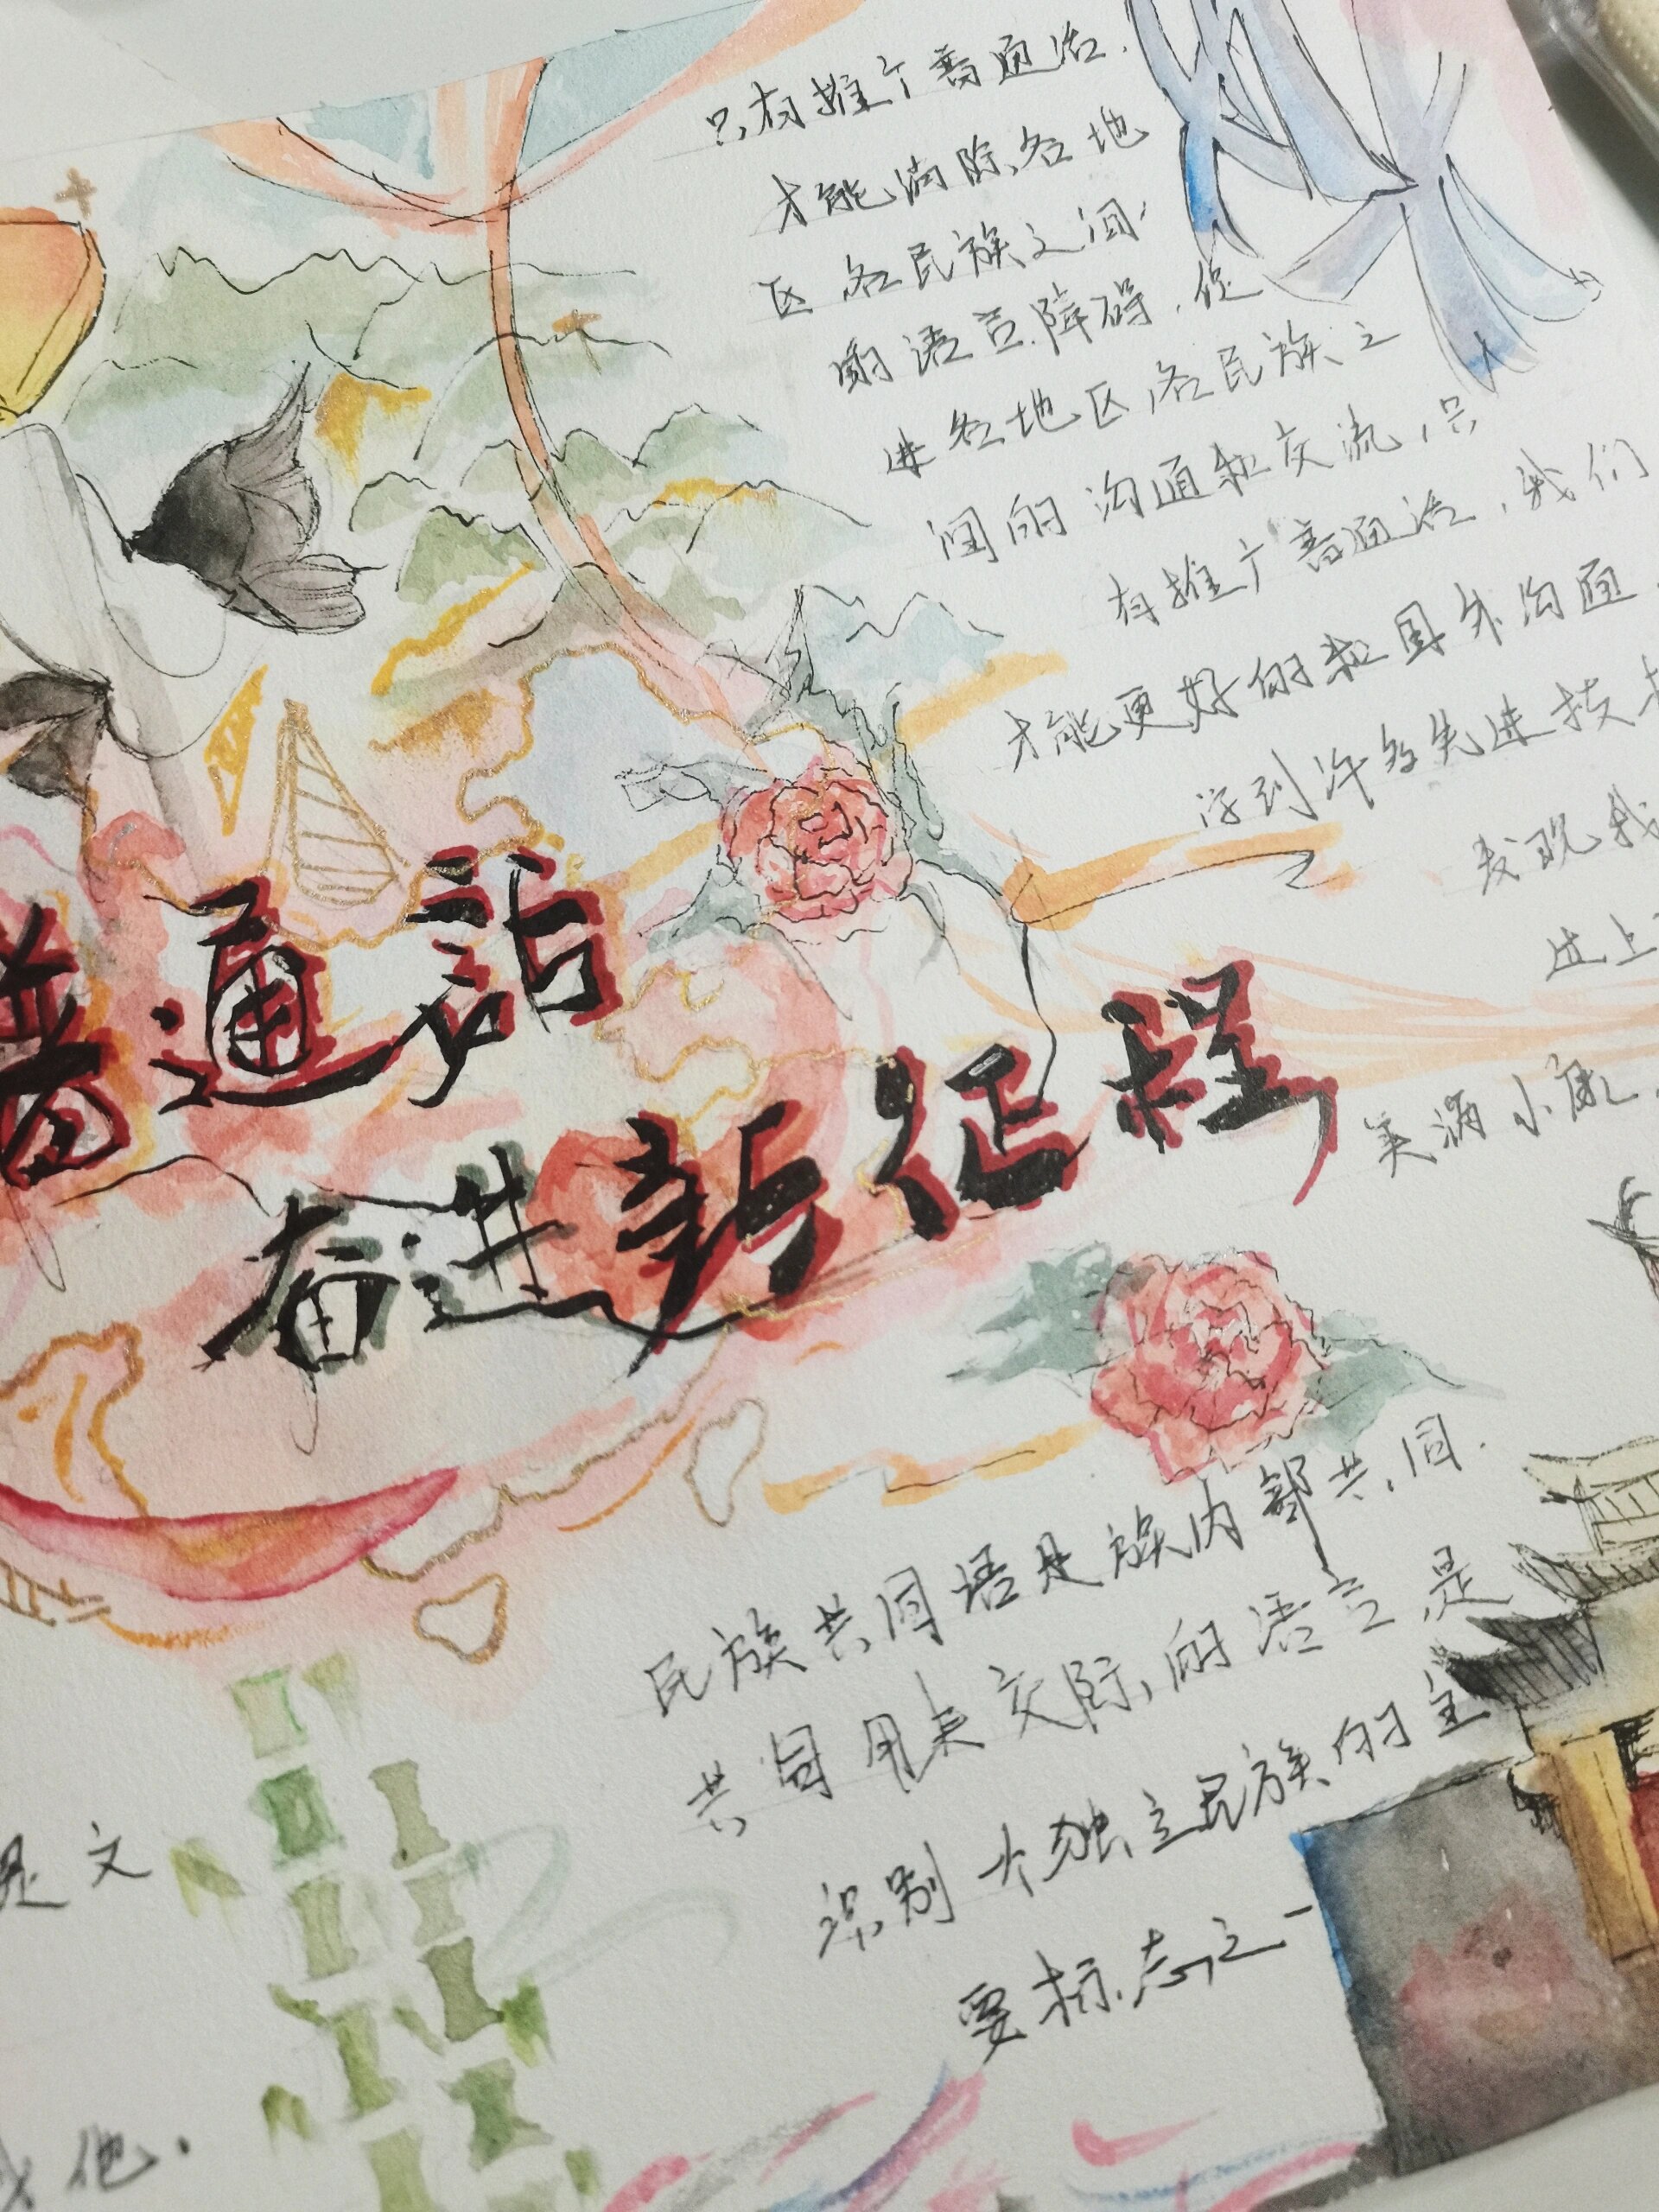 只有推广普通话，
才能消除各地
区各民族之间，
的语言障碍，促
进各地区各民族之
间的沟通和交流，只
有推广普通话，我们
才能更好的和国外沟通，
学到许多先进技术
发现我
过上
美满小康，
普通话
奋进新征程
民族共同语是族内部共同
共同用来交际的语言，是
识别个独立民族的主
要标志之一
是文
其他.